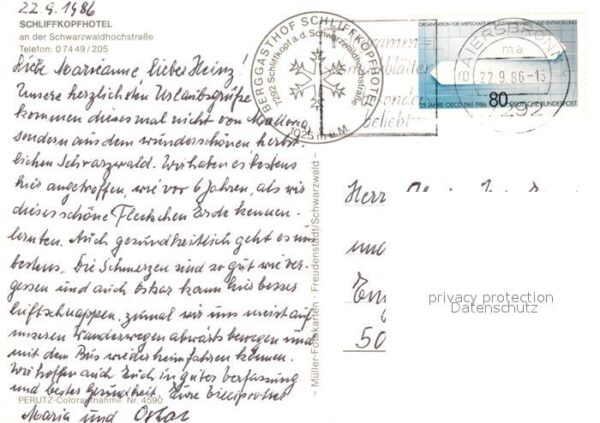 22.9.1986
SCHLIFFKOPFHOTEL
an der Schwarzwaldhochstraße
Telefon: 0 74 49 / 205
Liebe Marianne, lieber Heinz!
Unsere herzlichsten Urlaubsgrüße
kommen dieses mal nicht von Mallorca
sondern aus dem wunderschönen herbst-
lichen Schwarzwald. Wir haben es bestens
hier angetroffen, wie vor 6 Jahren, als wir
dieses schöne Fleckchen Erde kennen-
lernten. Auch gesundheitlich geht es uns
bestens. Die Schmerzen sind so gut wie ver-
gessen und auch Oskar kann hier besser
luftschnappen, zumal wir uns meist auf
unseren Wanderwegen abwärts bewegen und
mit dem Bus wieder heimfahren können.
Wir hoffen auch Euch in guter Verfassung
und bester Gesundheit. Eure
Maria und Oskar
PERUTZ-Coloraufnahme Nr. 4590
– Müller-Fotokarten · Freudenstadt/Schwarzwald –
BERGGASTHOF SCHLIFFKOPFHOTEL
7292 Schliffkopf a.d. Schwarzwaldhochstraße
1025 m ü.M.
beliebt
BAIERSBRONN
22.9.86-13
7292
ORGANISATION FÜR WIRTSCHAFTLICHE ZUSAMMENARBEIT UND ENTWICKLUNG
80
25 JAHRE OECD 1961-1986 DEUTSCHE BUNDESPOST
Herr
und
50
privacy protection
Datenschutz